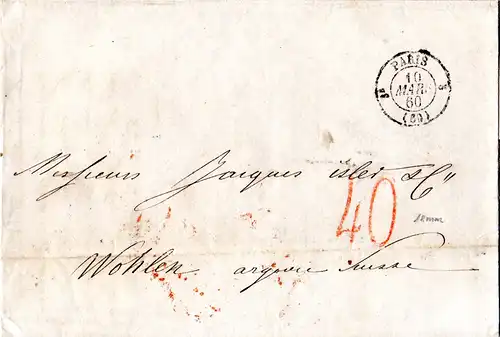 PARIS
10
MARS
60
(60)
Messieurs Jacques isler & Cie
40
18 mm
Wohlen argovie Suisse